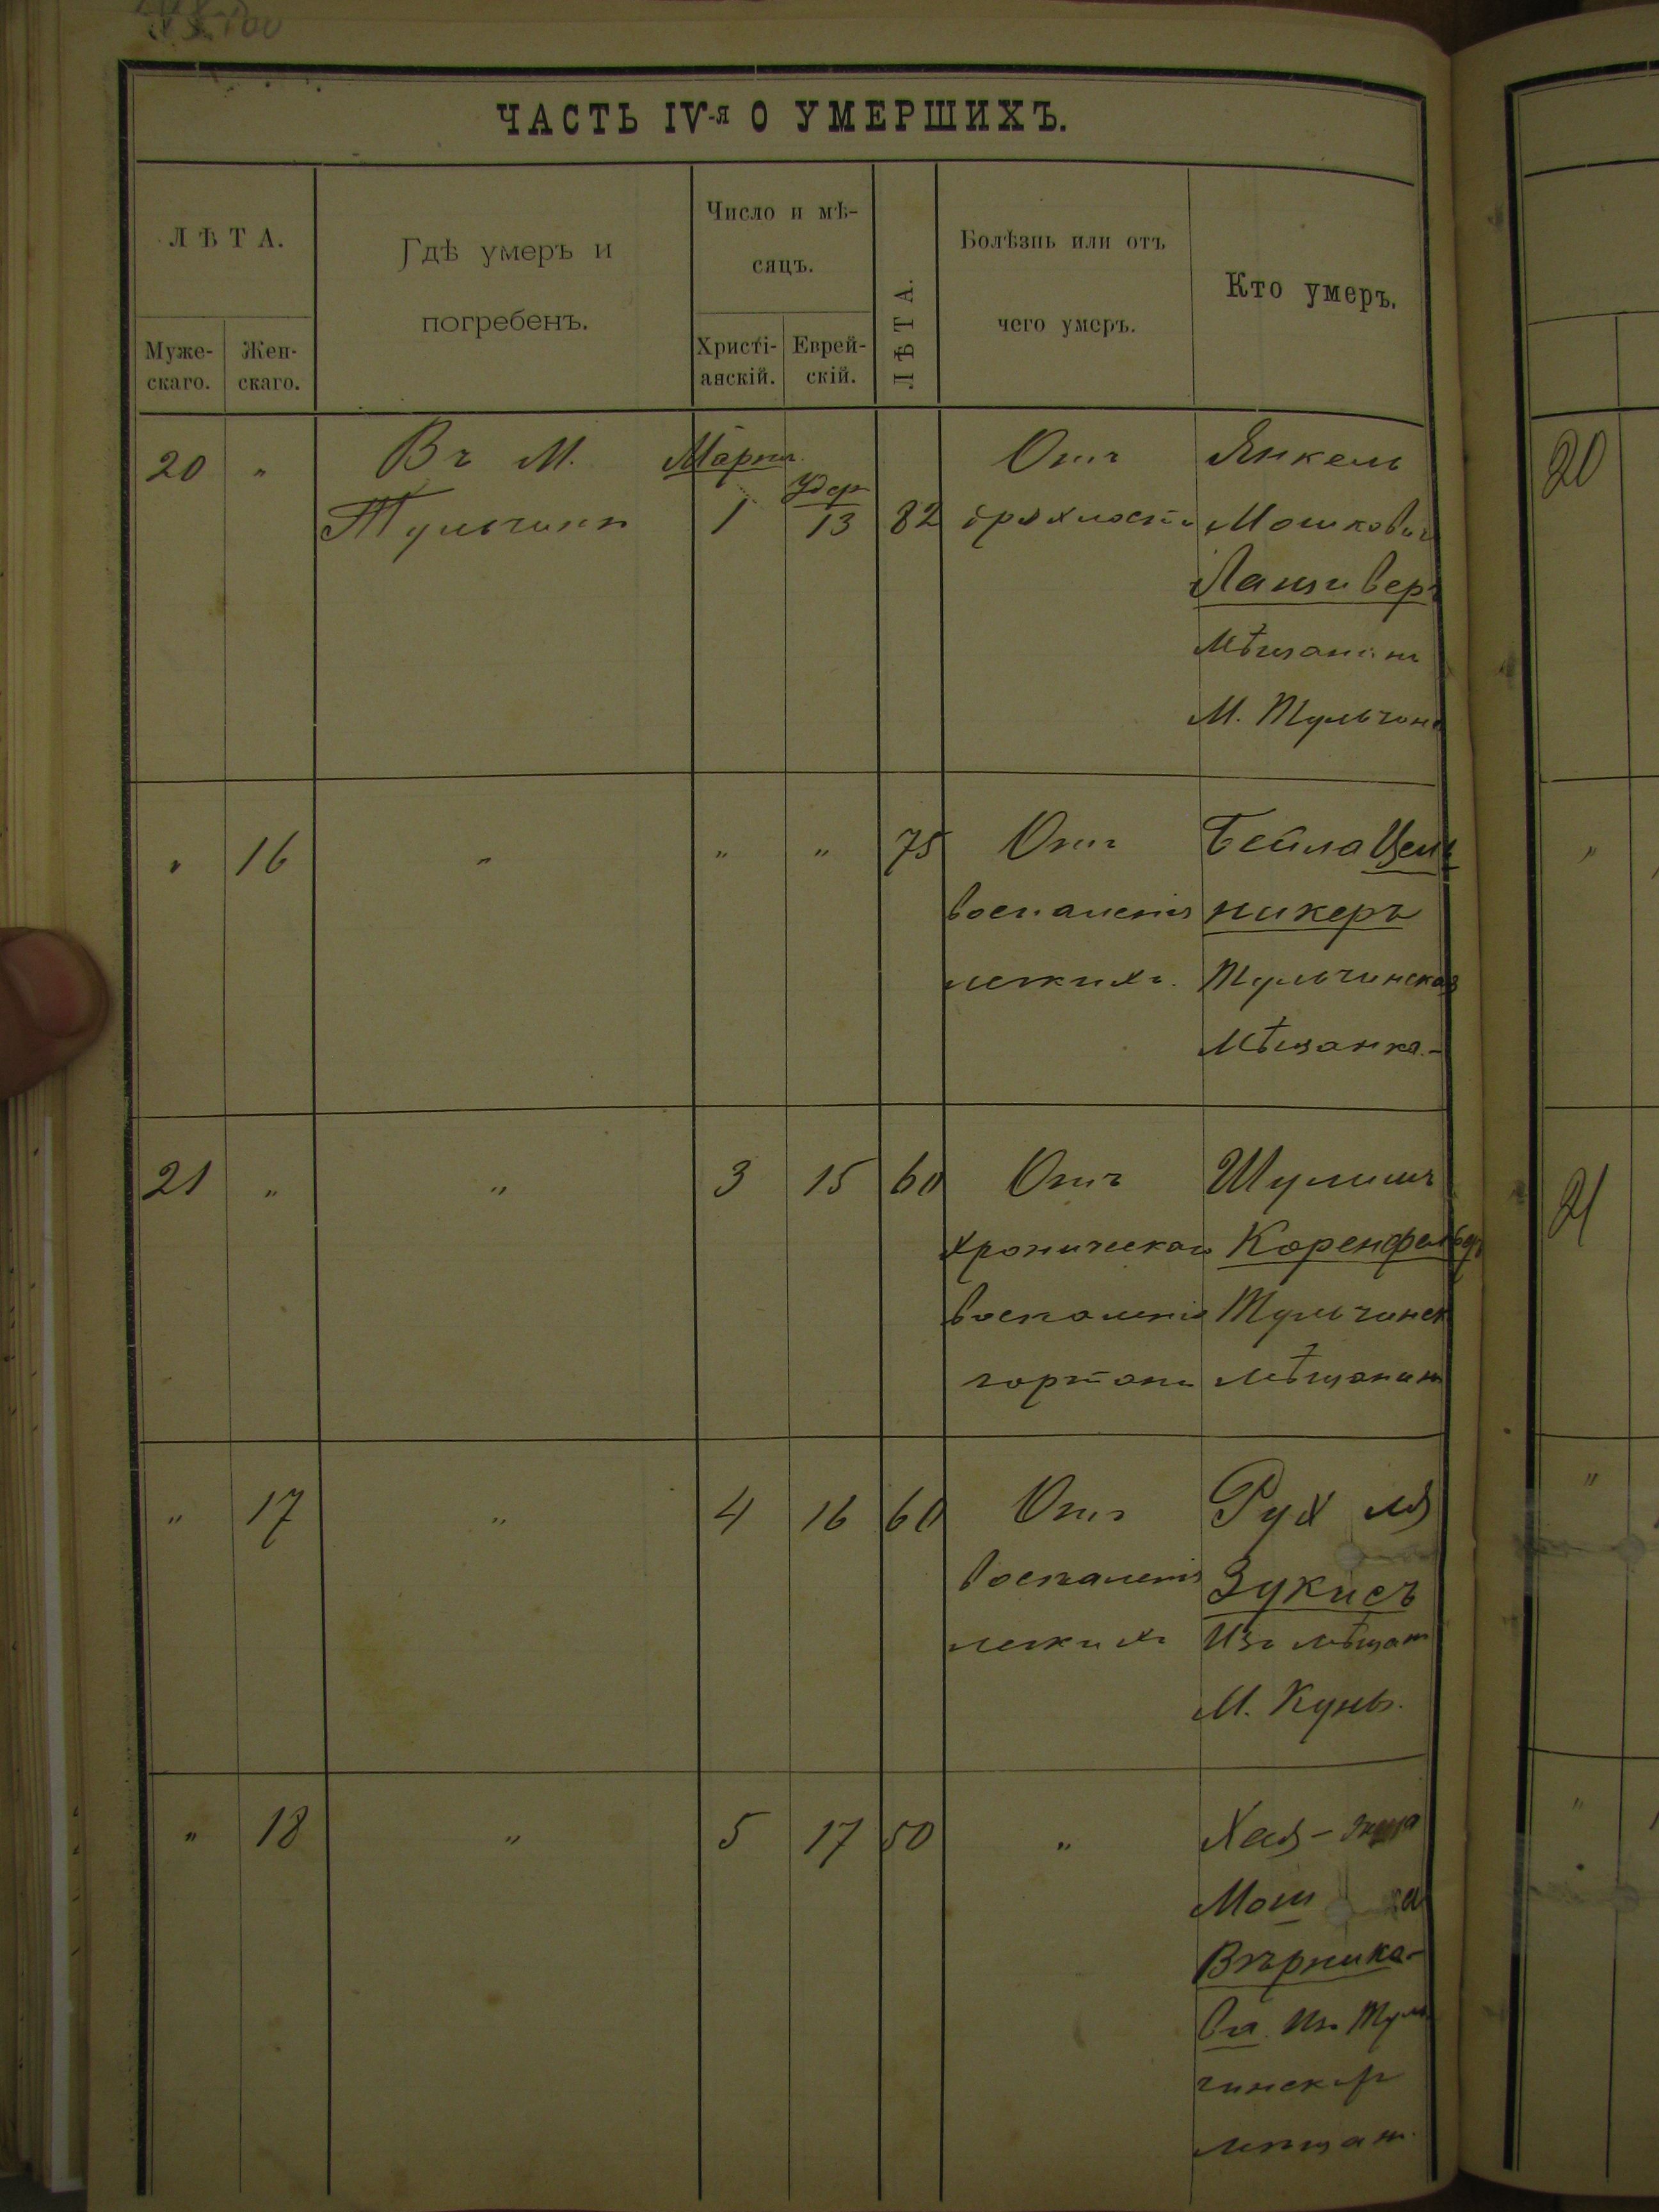 ЧАСТЬ IV-я О УМЕРШИХЪ.
ЛѢТА.
Муже-
скаго.
Жен-
скаго.
Гдѣ умеръ и
погребенъ.
Число и мѣ-
сяцъ.
Христі-
анскій.
Еврей-
скій.
ЛѢТА.
Болѣзнь или отъ
чего умеръ.
Кто умеръ.
20 „ Въ М. Тульчинъ Марта 1 13 82
Отъ
дряхлости
Янкель
Мошковичъ
Мѣщанинъ
М. Тульчина
„ 16 „ „ „ 75
Отъ
воспаленія
легкихъ.
Бейла Цейт
никеръ
Тульчинская
Мѣщанка.-
21 „ „ 3 15 60
Отъ
хроническаго
воспаленія
гортани
Шулимъ
Коренфельдъ
Тульчинск
мѣщанинъ
„ 17 „ 4 16 60
Отъ
воспаленія
легкихъ
Рухля
Зукисъ
Изъ мѣщанъ
М.
„ 18 „ 5 17 50 „
Хая-
Мош
ва. Изъ Туль
чинскихъ
мѣщанъ.
20
„
21
„
„